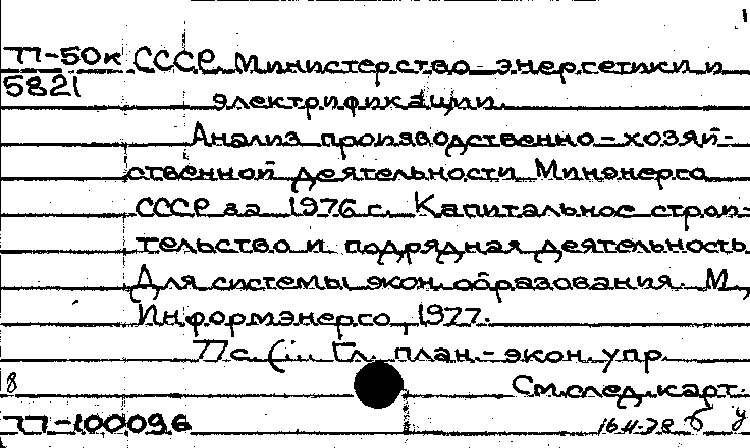 1
77-50к СССР. Министерство энергетики и
5821 электрификации.
Анализ производственно-хозяй-
ственной деятельности Минэнерго
СССР за 1976 г. Капитальное строи-
тельство и подрядная деятельность.
Для системы экон. образования. М.,
Информэнерго, 1977.
77 с. Гл. план.-экон. упр.
8 См. след. карт.
77-100096